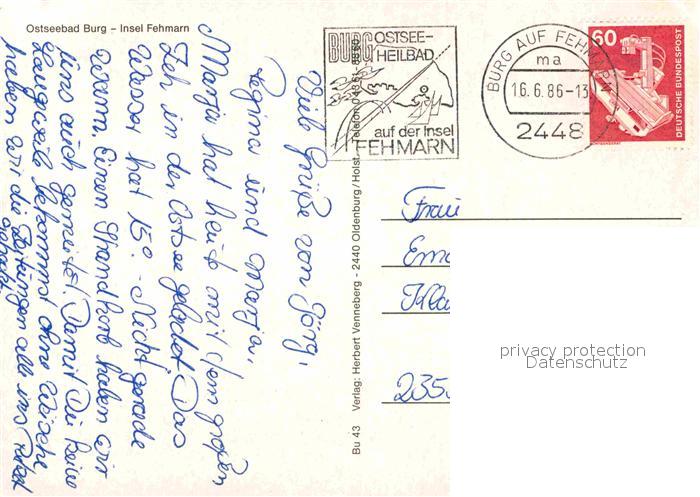 Ostseebad Burg – Insel Fehmarn
Viele Grüße von Jörg,
Regina und Marga,
Marga hat heute mit dem großen
Zeh in der Ostsee gebadet. Das
Wasser hat 15°. – Nicht gerade
warm. Einen Strandkorb haben wir
uns auch gemietet. Damit Du keine
Langeweile bekommst ohne
haben wir die Zeitungen alle ins Paket
gepackt.
Bu 43 Verlag: Herbert Venneberg - 2440 Oldenburg/Holst. Telefon 0 43 61-
BURG OSTSEE-
HEILBAD
auf der Insel
FEHMARN
BURG AUF FEHMARN
ma
16.6.86-13
2448
60
DEUTSCHE BUNDESPOST
Frau
Em
Kla
235
privacy protection
Datenschutz